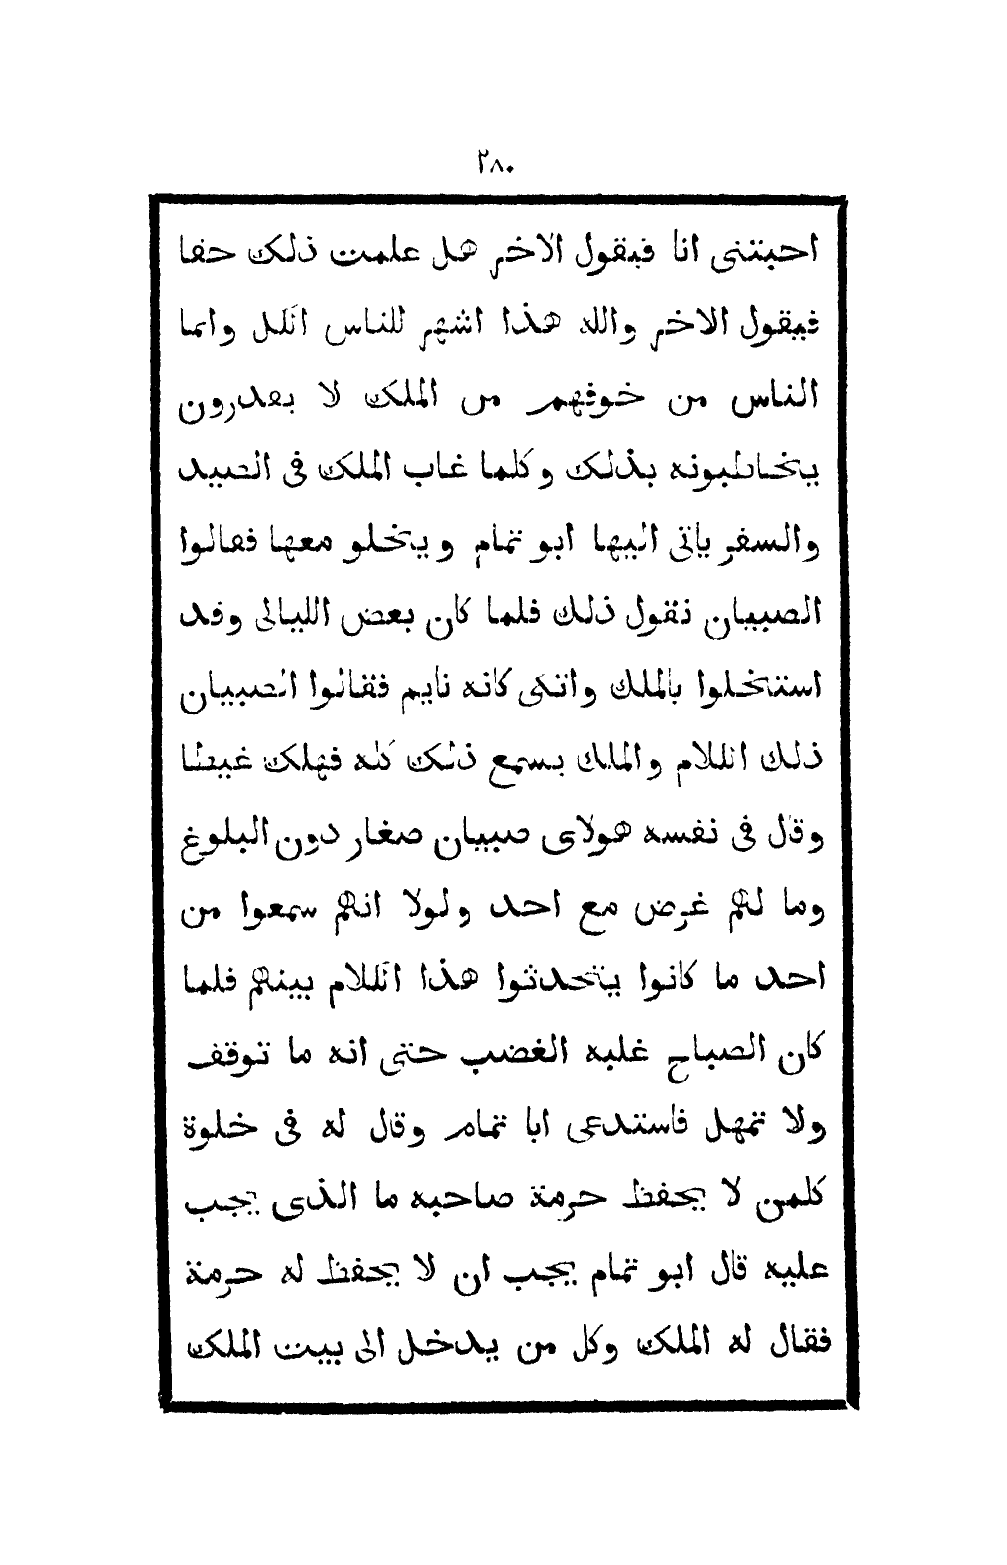 ٢٨٠
احبتنى انا فيقول الاخر هل علمت ذلك حقا
فيقول الاخر والله هذا اشهر للناس الكل وانما
الناس من خوفهم من الملك لا يقدرون
يخاطبونه بذلك وكلما غاب الملك فى الصيد
والسفر ياتى اليها ابو تمام ويتخلو معها فقالوا
الصبيان نقول ذلك فلما كان بعض الليالى وقد
استخلوا بالملك واتكى كانه نايم فقالوا الصبيان
ذلك الكلام والملك يسمع ذلك كله فهلك غيظا
وقال فى نفسه هولاى صبيان صغار دون البلوغ
وما لهم غرض مع احد ولولا انهم سمعوا من
احد ما كانوا يتحدثوا هذا الكلام بينهم فلما
كان الصباح غلبه الغضب حتى انه ما توقف
ولا تمهل فاستدعى ابا تمام وقال له فى خلوة
كلمن لا يحفظ حرمة صاحبه ما الذى يجب
عليه قال ابو تمام يجب ان لا يحفظ له حرمة
فقال له الملك وكل من يدخل الى بيت الملك